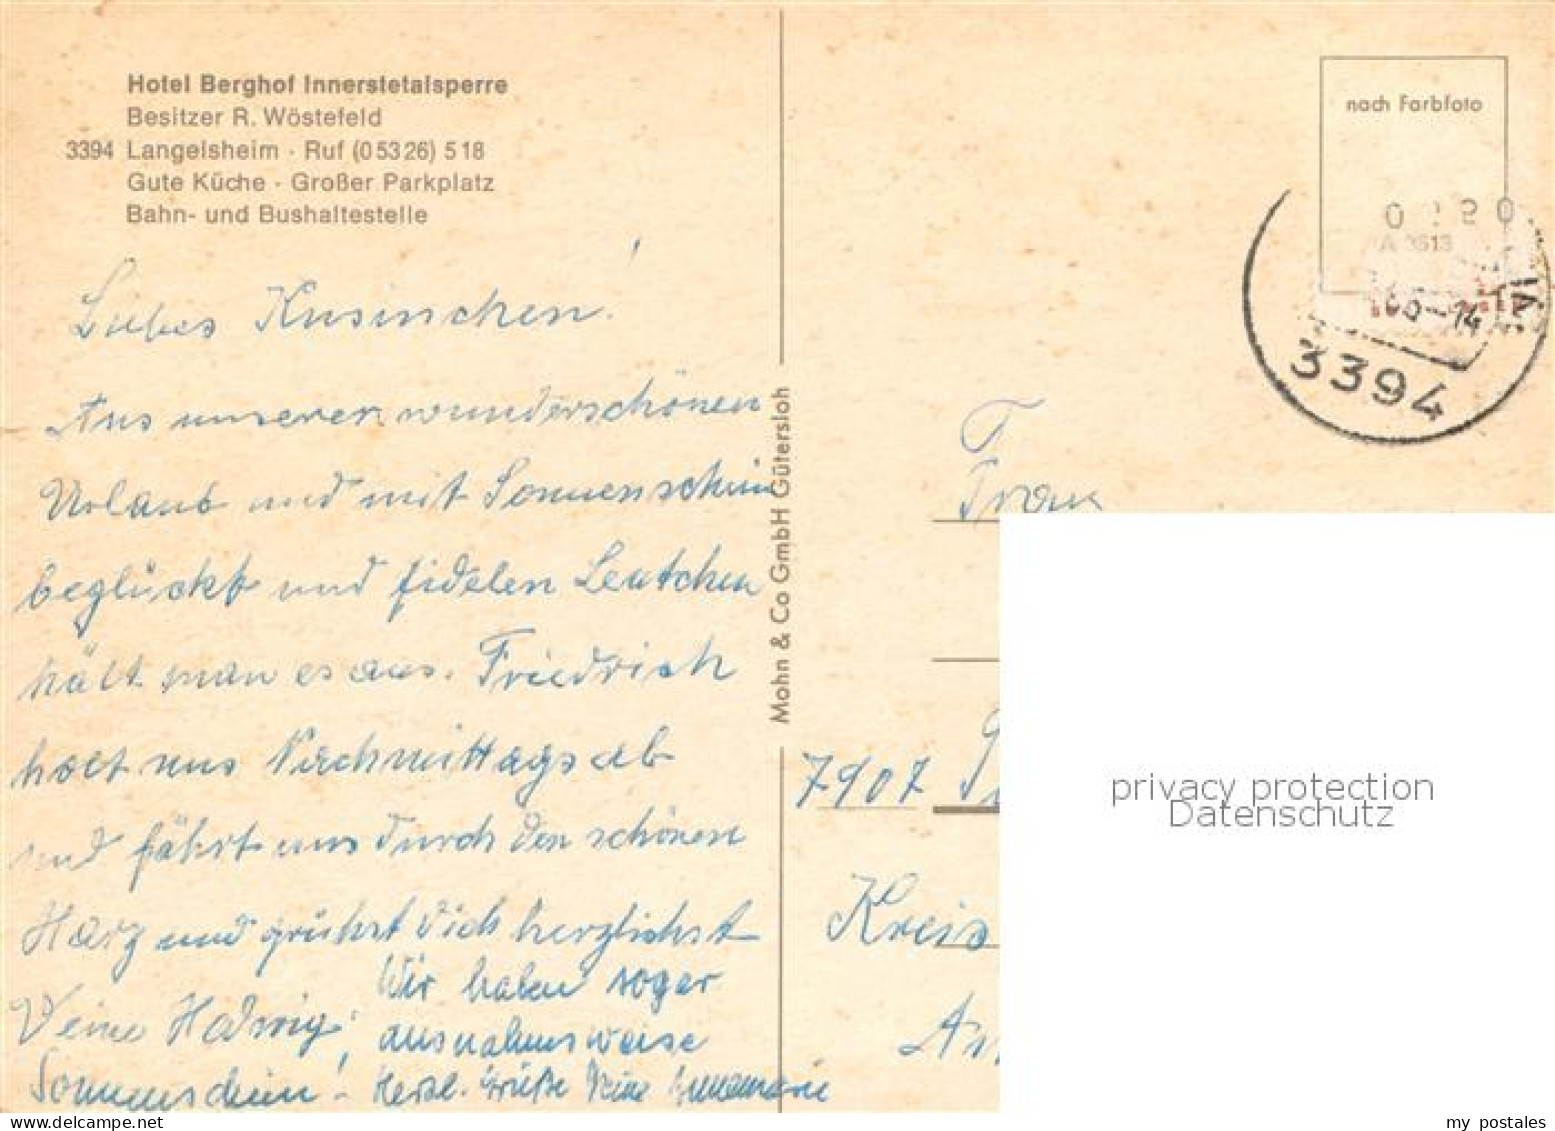 Hotel Berghof Innerstetalsperre
Besitzer R. Wöstefeld
3394 Langelsheim · Ruf (05326) 518
Gute Küche · Großer Parkplatz
Bahn- und Bushaltestelle
Liebes Kusinchen!
Aus unserem wunderschönen
Urlaub und mit Sonnenschein
beglückt und fidelen Leutchen
hält man es aus. Friedrich
holt uns Nachmittags ab
und fährt uns durch den schönen
Harz und grüßt Dich herzlichst
Deine Hedwig!
Wir haben sogar
ausnahmsweise
Sonnenschein!
Herzl. Grüße Deine Annemarie
Mohn & Co GmbH Gütersloh
nach Farbfoto
A 0613
-14
3394
Frau
7907
Kreis
privacy protection
Datenschutz
my postales